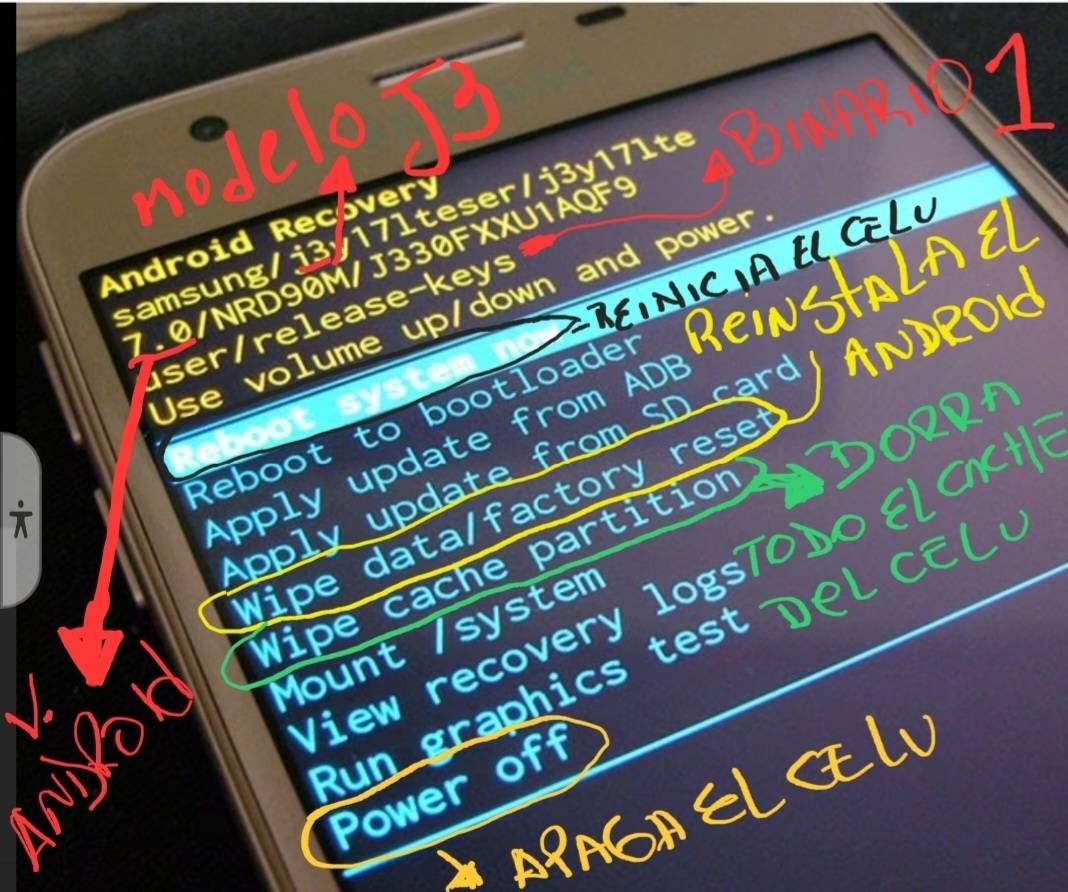 modelo J3
BINARIO 1
Android Recovery
samsung/j3y17lteser/j3y17lte
7.0/NRD90M/J330FXXU1AQF9
user/release-keys
Use volume up/down and power.
Reboot system now
-REINICIA EL CELU
Reboot to bootloader
Apply update from ADB
Apply update from SD card
Wipe data/factory reset
REINSTALA EL
ANDROId
Wipe cache partition
BORRA
TODO EL CACHE
DEL CELU
Mount /system
View recovery logs
Run graphics test
Power off
APAGA EL CELU
V.
ANDROId